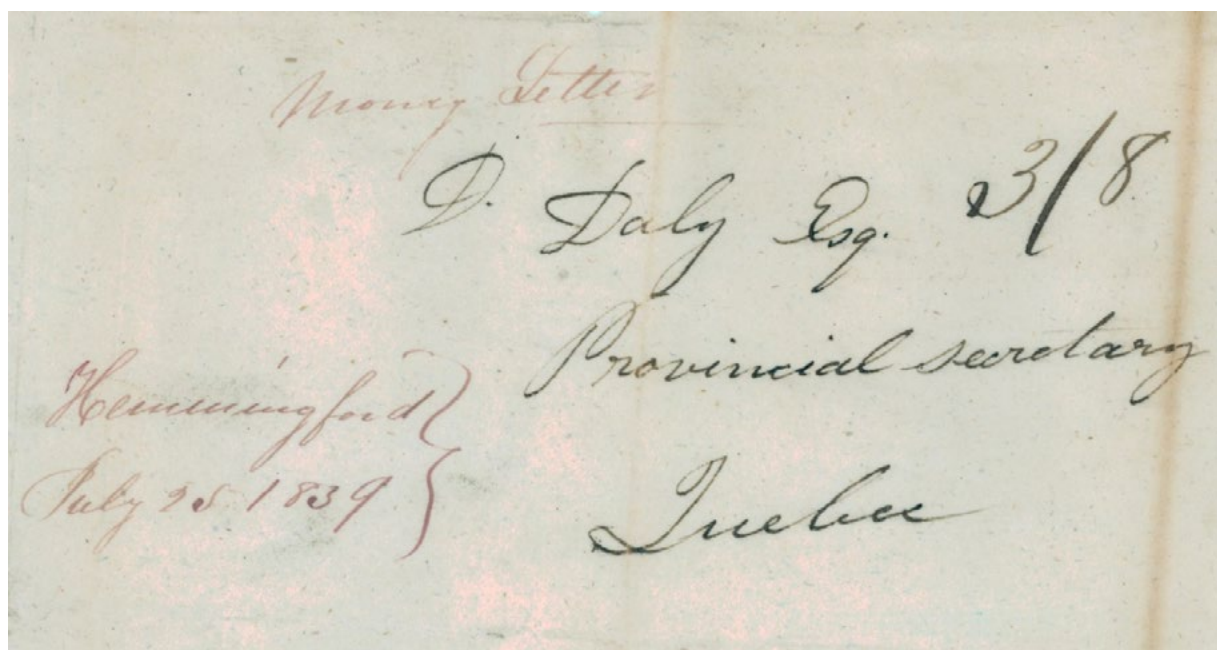 Money Letter
D. Daly Esq. 3/8
Provincial secretary
Hemmingford
July 25 1839
Quebec